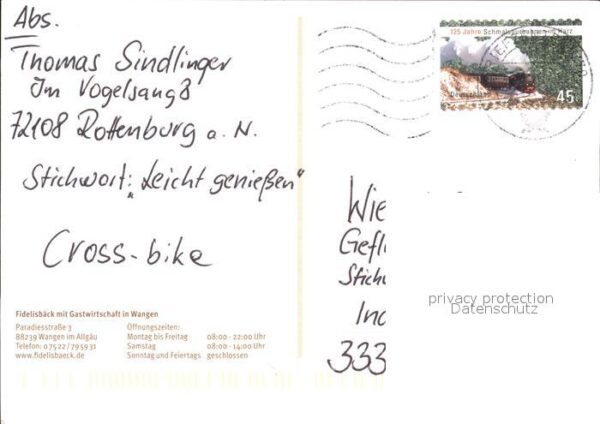 Abs.
Thomas Sindlinger
Im Vogelsang 8
72108 Rottenburg a. N.
Stichwort: „Leicht genießen"
Cross-bike
125 Jahre Schmalspurbahnen im Harz
Deutschland
45
Wie
Gefl
Stich
Ind
333
privacy protection
Datenschutz
Fidelisbäck mit Gastwirtschaft in Wangen
Paradiesstraße 3
88239 Wangen im Allgäu
Telefon: 0 75 22 / 79 59 31
www.fidelisbaeck.de
Öffnungszeiten:
Montag bis Freitag 08:00 - 22:00 Uhr
Samstag 08:00 - 14:00 Uhr
Sonntag und Feiertags geschlossen